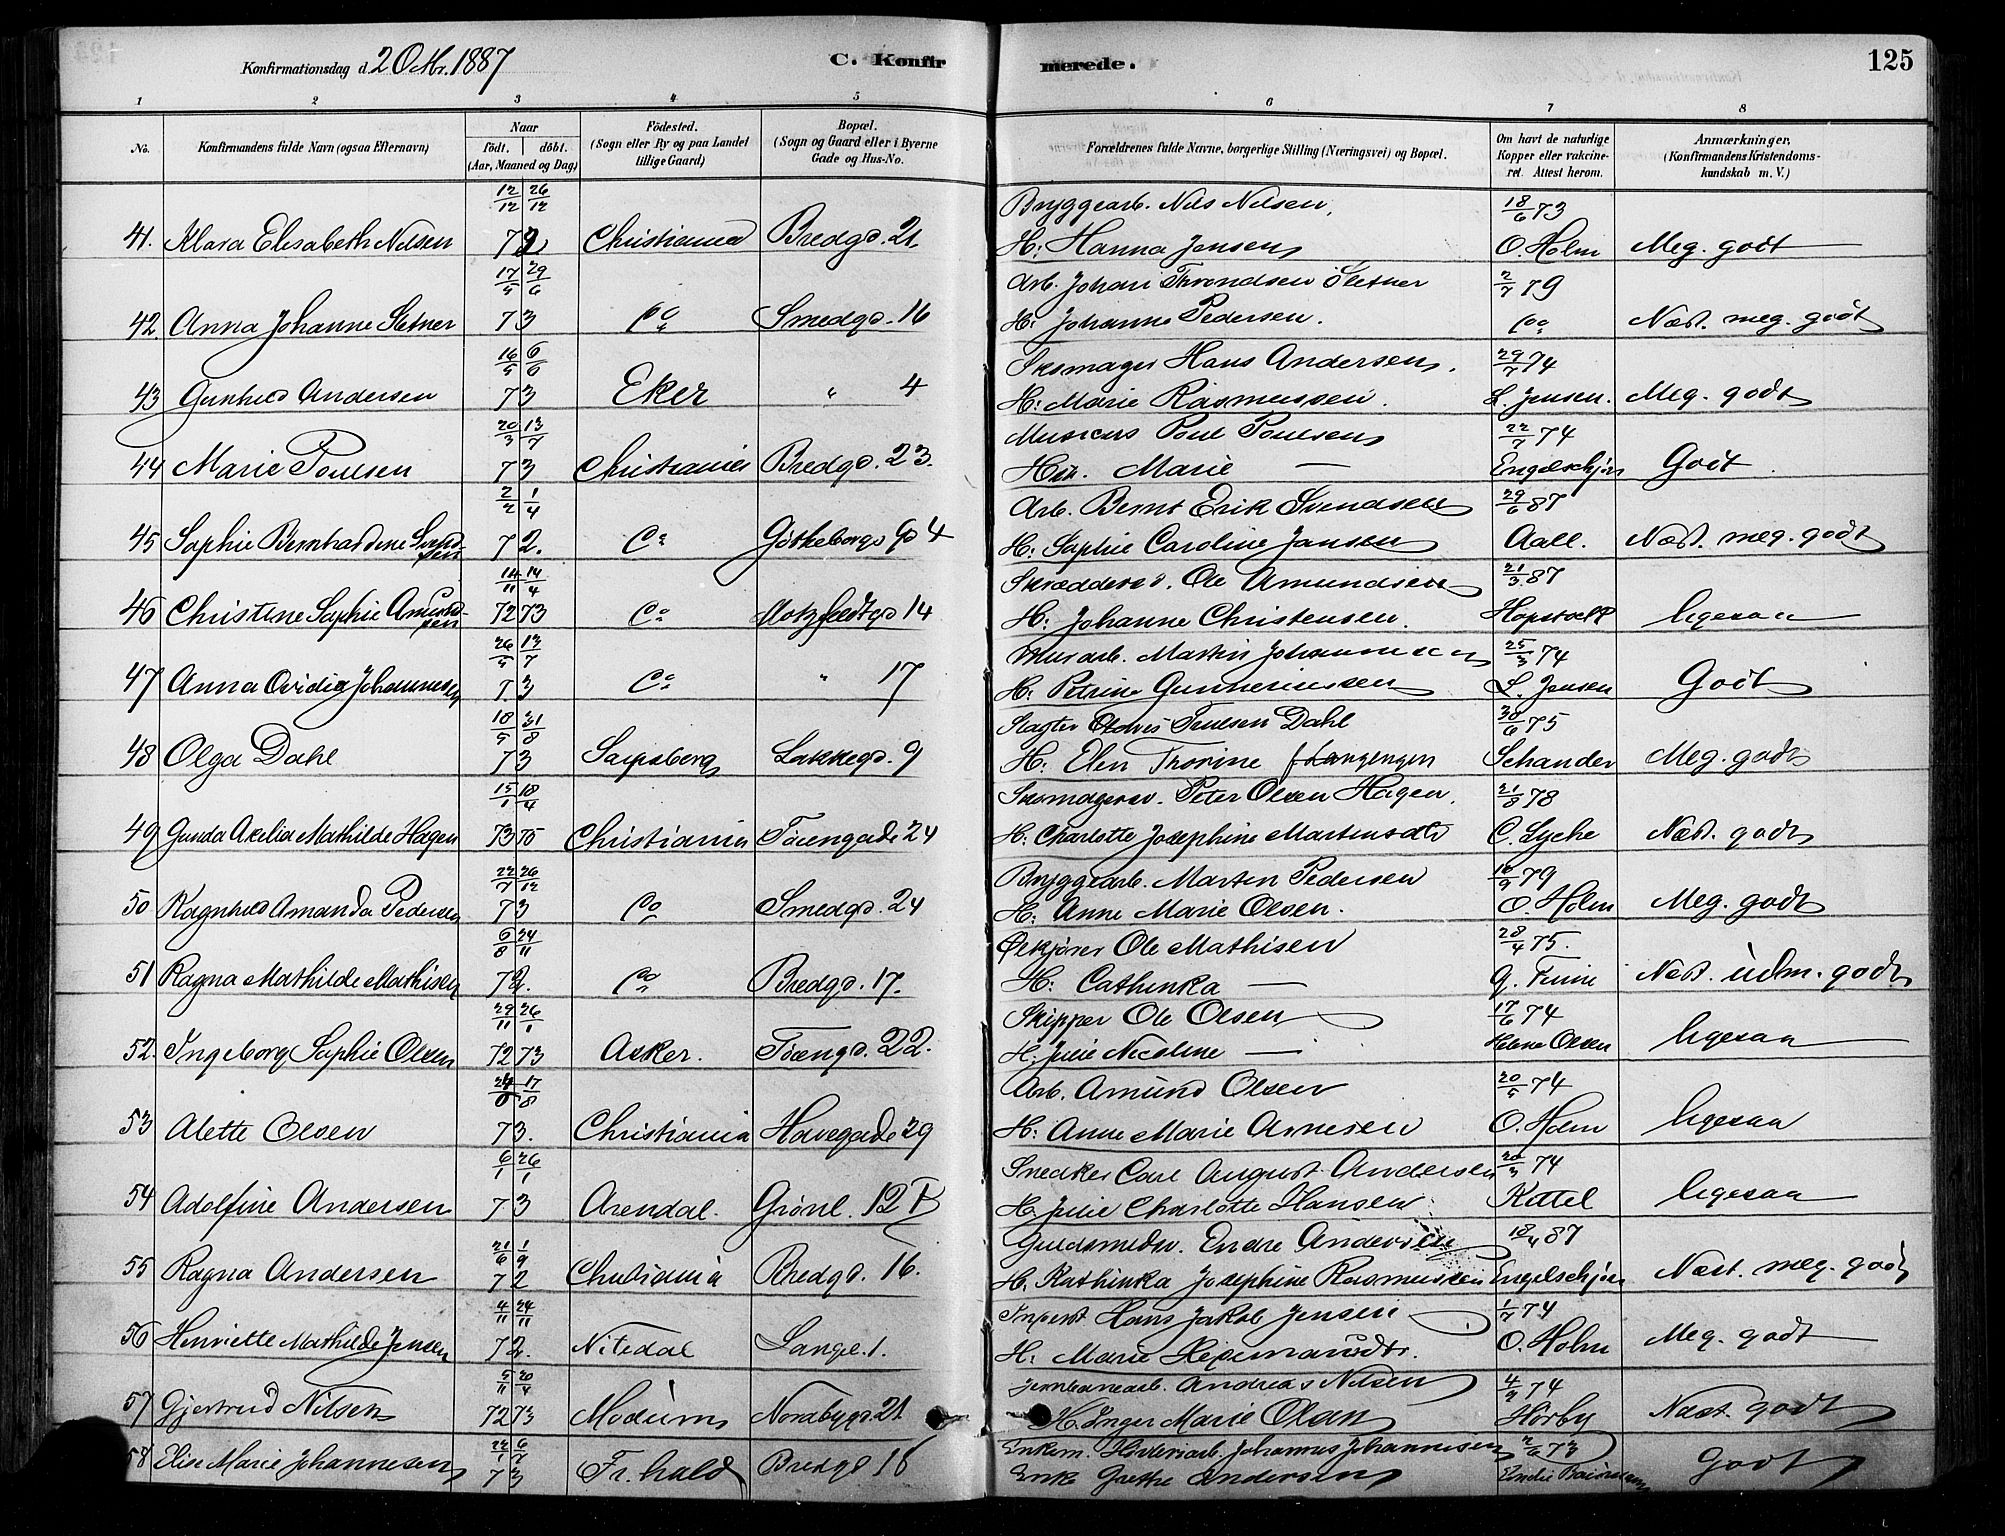 Konfirmationsdag d. 2 Oktbr. 1887
C. Konfirmerede.
125
1 2 3 4 5 6 7 8
No.
Konfirmandens fulde Navn (ogsaa Efternavn)
Naar
født. døbt.
(Aar, Maaned og Dag)
Fødested.
(Sogn eller By og paa Landet
tillige Gaard)
Bopæl.
(Sogn og Gaard eller i Byerne
Gade og Hus-No.
Forældrenes fulde Navne, borgerlige Stilling (Næringsvei) og Bopæl.
Om havt de naturlige
Kopper eller vakcine-
ret. Attest herom.
Anmærkninger,
(Konfirmandens Kristendoms-
kundskab m. V.)
12/12 26/12 Bryggearb. Nils Nilsen, 18/6 73
41. Klara Elisabeth Nilsen 72 Christiania Bredgd. 21. H: Hanna Jensen O. Holm Meg. godt
17/5 29/6 Arb. Johan Throndsen Sletner 2/7 79
42. Anna Johanne Sletner 73 Do Smedgd. 16 H: Johanne Pedersen. Do Næst. meg. godt
16/5 6/6 Skomager Hans Andersen. 29/7 74
43 Gunhild Andersen 73 Eker " 4 H: Marie Rasmussen. L. Jensen. Meg. godt
20/3 13/7 Musicus Poul Poulsen 22/7 74
44 Marie Poulsen 73 Christiania Bredgd. 23. Marie — Engelschjøn Godt.
2/2 1/4 Arb. Bernt Erik Svendsen 29/6 87
45 Sophie Bernhardine Svend-
sen 72. Do Götheborggd 4 H: Sophie Caroline Jansen Aall. Næst. meg. godt
14/11 14/4 Ole Amundsen 21/3 87
46 Christine Sophie Amund-
sen 72 73 Do Motzfeldtgd 14 H: Johanne Christensen. Hopstock ligesaa
26/5 13/7 Murarb. Martin Johannesen 25/3 74
47 Anna Ovidia Johannesen 73 Do " 17 H: Petrine Gunnerussen L. Jensen Godt
18/5 31/8 Slagter Dahl 30/6 75
48 Olga Dahl 73 Sarpsborg Lakkegd. 9 H: Elen Thorine Schander Meg. godt
15/1 18/4 Skomagersv. Peter Olsen Hagen. 21/8 78
49 Gunda Axelia Mathilde Hagen 73 75 Christiania Töiengade 24 H: Charlotte Josephine Martinsdtr C. Lyche Næst. godt
22/7 26/12 Bryggearb. Martin Pedersen 16/9 79
50 Ragnhild Amanda Pedersen 73 Do Smedgd. 24 H: Anne Marie Olsen. O. Holm Meg. godt
6/8 24/11 Ølkjører Ole Mathisen 28/4 75.
51 Ragna Mathilde Mathisen 72. Do Bredgd. 17. H: Cathinka — Næst. udm. godt
29/11 26/1 Skipper Ole Olsen 17/6 74
52. Ingeborg Sophie Olsen 72 73 Asker. Töiengd. 22. H. Julie Nicoline — Helene Olsen ligesaa
17/8 Arb. Amund Olsen 20/5 74
53 Alette Olsen 73. Christiania Havegade 29 H: Anne Marie Arnesen O. Holm ligesaa
6/1 26/1 Snedker Carl August Andersen 20/3 74
54 Adolfine Andersen 73 Arendal. Grönl. 12 B H. Julie Charlotte Hansen Kittel ligesaa
21/6 1/9 Guldsmedsv. Endre Andersen 18/4 87
55 Ragna Andersen 72 Christiania Bredgd. 16. H. Kathinka Josephine Rasmussen Engelschjøn Næst. meg. godt
4/11 24/11 Hans Jakob Jensen 1/7 74
56 Henriette Mathilde Jensen 72. Nitedal Langl. 1. H: Marie O. Holm Meg. godt
5/11 20/4 Jernbanearb. Andreas Nilsen 4/9 74
57 Gjertrud Nilsen 72 73 Modum Nordbygd. 21 H. Inger Marie Olsen Hörby Næst. godt
Enkem. Johannes Johannesen 2/6 73
58 Elise Marie Johannesen 73 Fr.hald Bredgd 18 Enke Grethe Andersen Godt